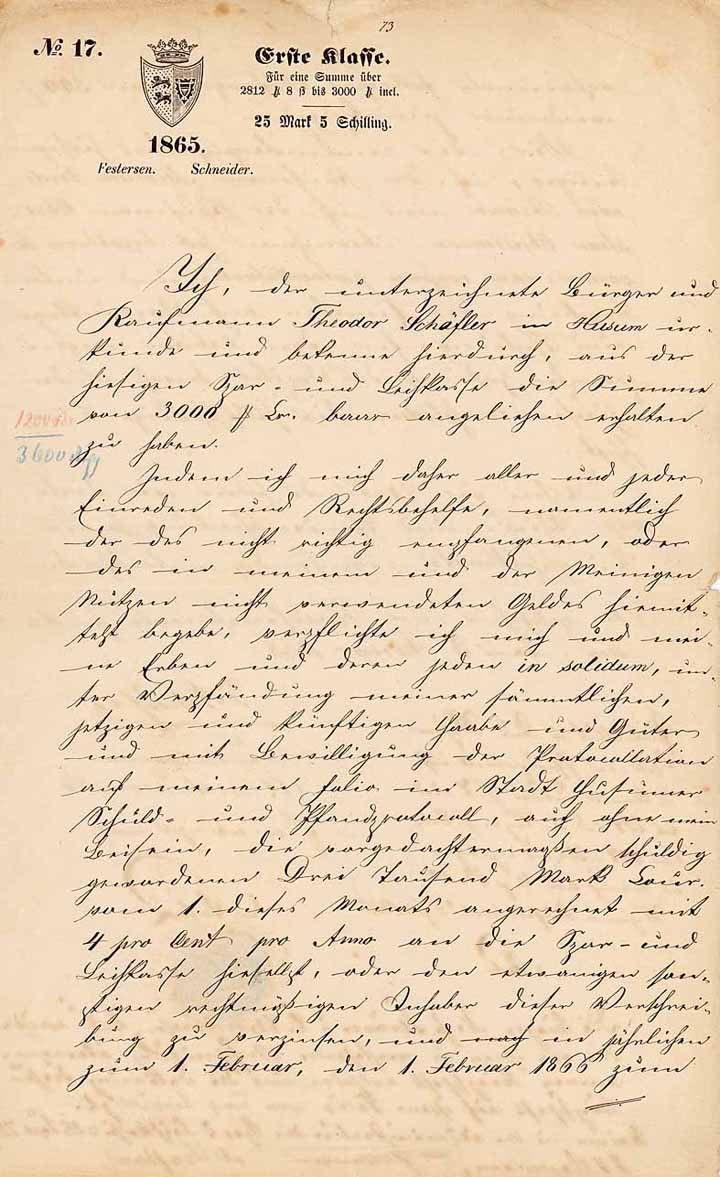 73
No. 17.
Erste Klasse.
Für eine Summe über
2812 ℳ 8 ß bis 3000 ℳ incl.
25 Mark 5 Schilling.
1865.
Festersen. Schneider.
Ich, der unterzeichnete Bürger und
Kaufmann Theodor Schäfler in Husum ur-
kunde und bekenne hierdurch, aus der
hiesigen Spar- und Leihkasse die Summe
von 3000 ℳ Cr. baar angeliehen erhalten
zu haben.
1200
3600 ℳ
Indem ich mich daher aller und jeder
Einreden und Rechtsbehelfe, namentlich
der des nicht richtig empfangenen, oder
des in meinem und der Meinigen
Nutzen nicht verwendeten Geldes hiemit-
telst begebe, verpflichte ich mich und mei-
ne Erben und deren jeden in solidum, un-
ter Verpfändung meiner sämmtlichen,
jetzigen und künftigen Haabe und Güter
und mit Bewilligung der Protocollation
auf meinem folio im Stadt Husumer
Schuld- und Pfandprotocoll, auch ohne mein
Beisein, die vorgedachtermaßen schuldig
gewordenen Drei Tausend Mark Cour.
vom 1. dieses Monats angerechnet mit
4 pro Cent pro Anno an die Spar- und
Leihkasse hieselbst, oder den etwanigen son-
stigen rechtmäßigen Inhaber dieser Verschrei-
bung zu verzinsen, und nach in jährlichen
zum 1. Februar, den 1. Februar 1866 zum